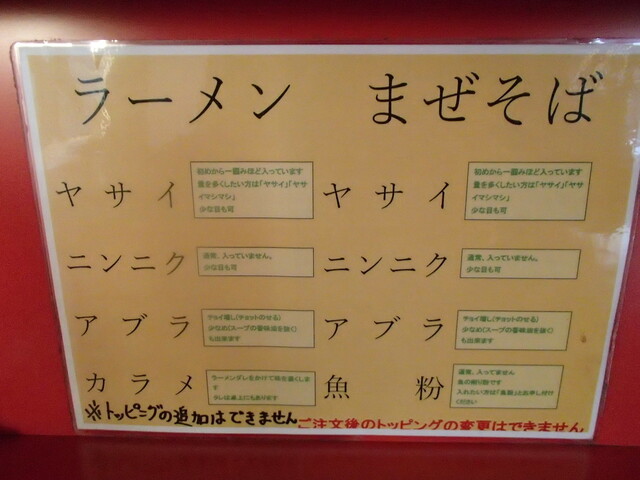 ラーメン
ヤサイ
初めから一掴みほど入っています
量を多くしたい方は「ヤサイ」「ヤサ
イマシマシ」
少な目も可
ニンニク
通常、入っていません。
少な目も可
アブラ
チョイ増し(チョットのせる)
少なめ(スープの香味油を抜く)
も出来ます
カラメ
ラーメンダレをかけて味を濃くしま
す
タレは卓上にもあります
まぜそば
ヤサイ
初めから一掴みほど入っています
量を多くしたい方は「ヤサイ」「ヤサ
イマシマシ」
少な目も可
ニンニク
通常、入っていません。
少な目も可
アブラ
チョイ増し(チョットのせる)
少なめ(スープの香味油を抜く)
も出来ます
魚粉
通常、入ってません
魚の削り節です
入れたい方は「魚粉」とお申し付け
ください
※トッピングの追加はできません
ご注文後のトッピングの変更はできません